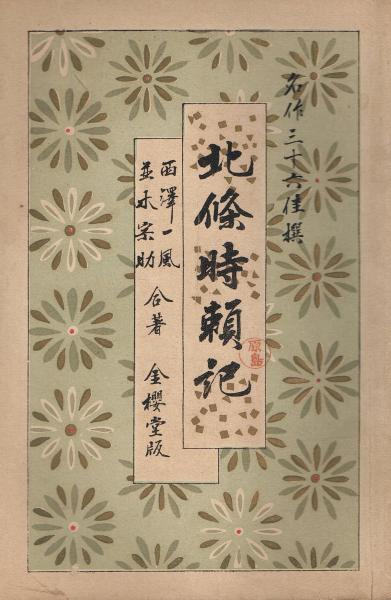 名作三十六佳撰
北條時頼記
西澤一風
並木宗助
合著 金櫻堂版